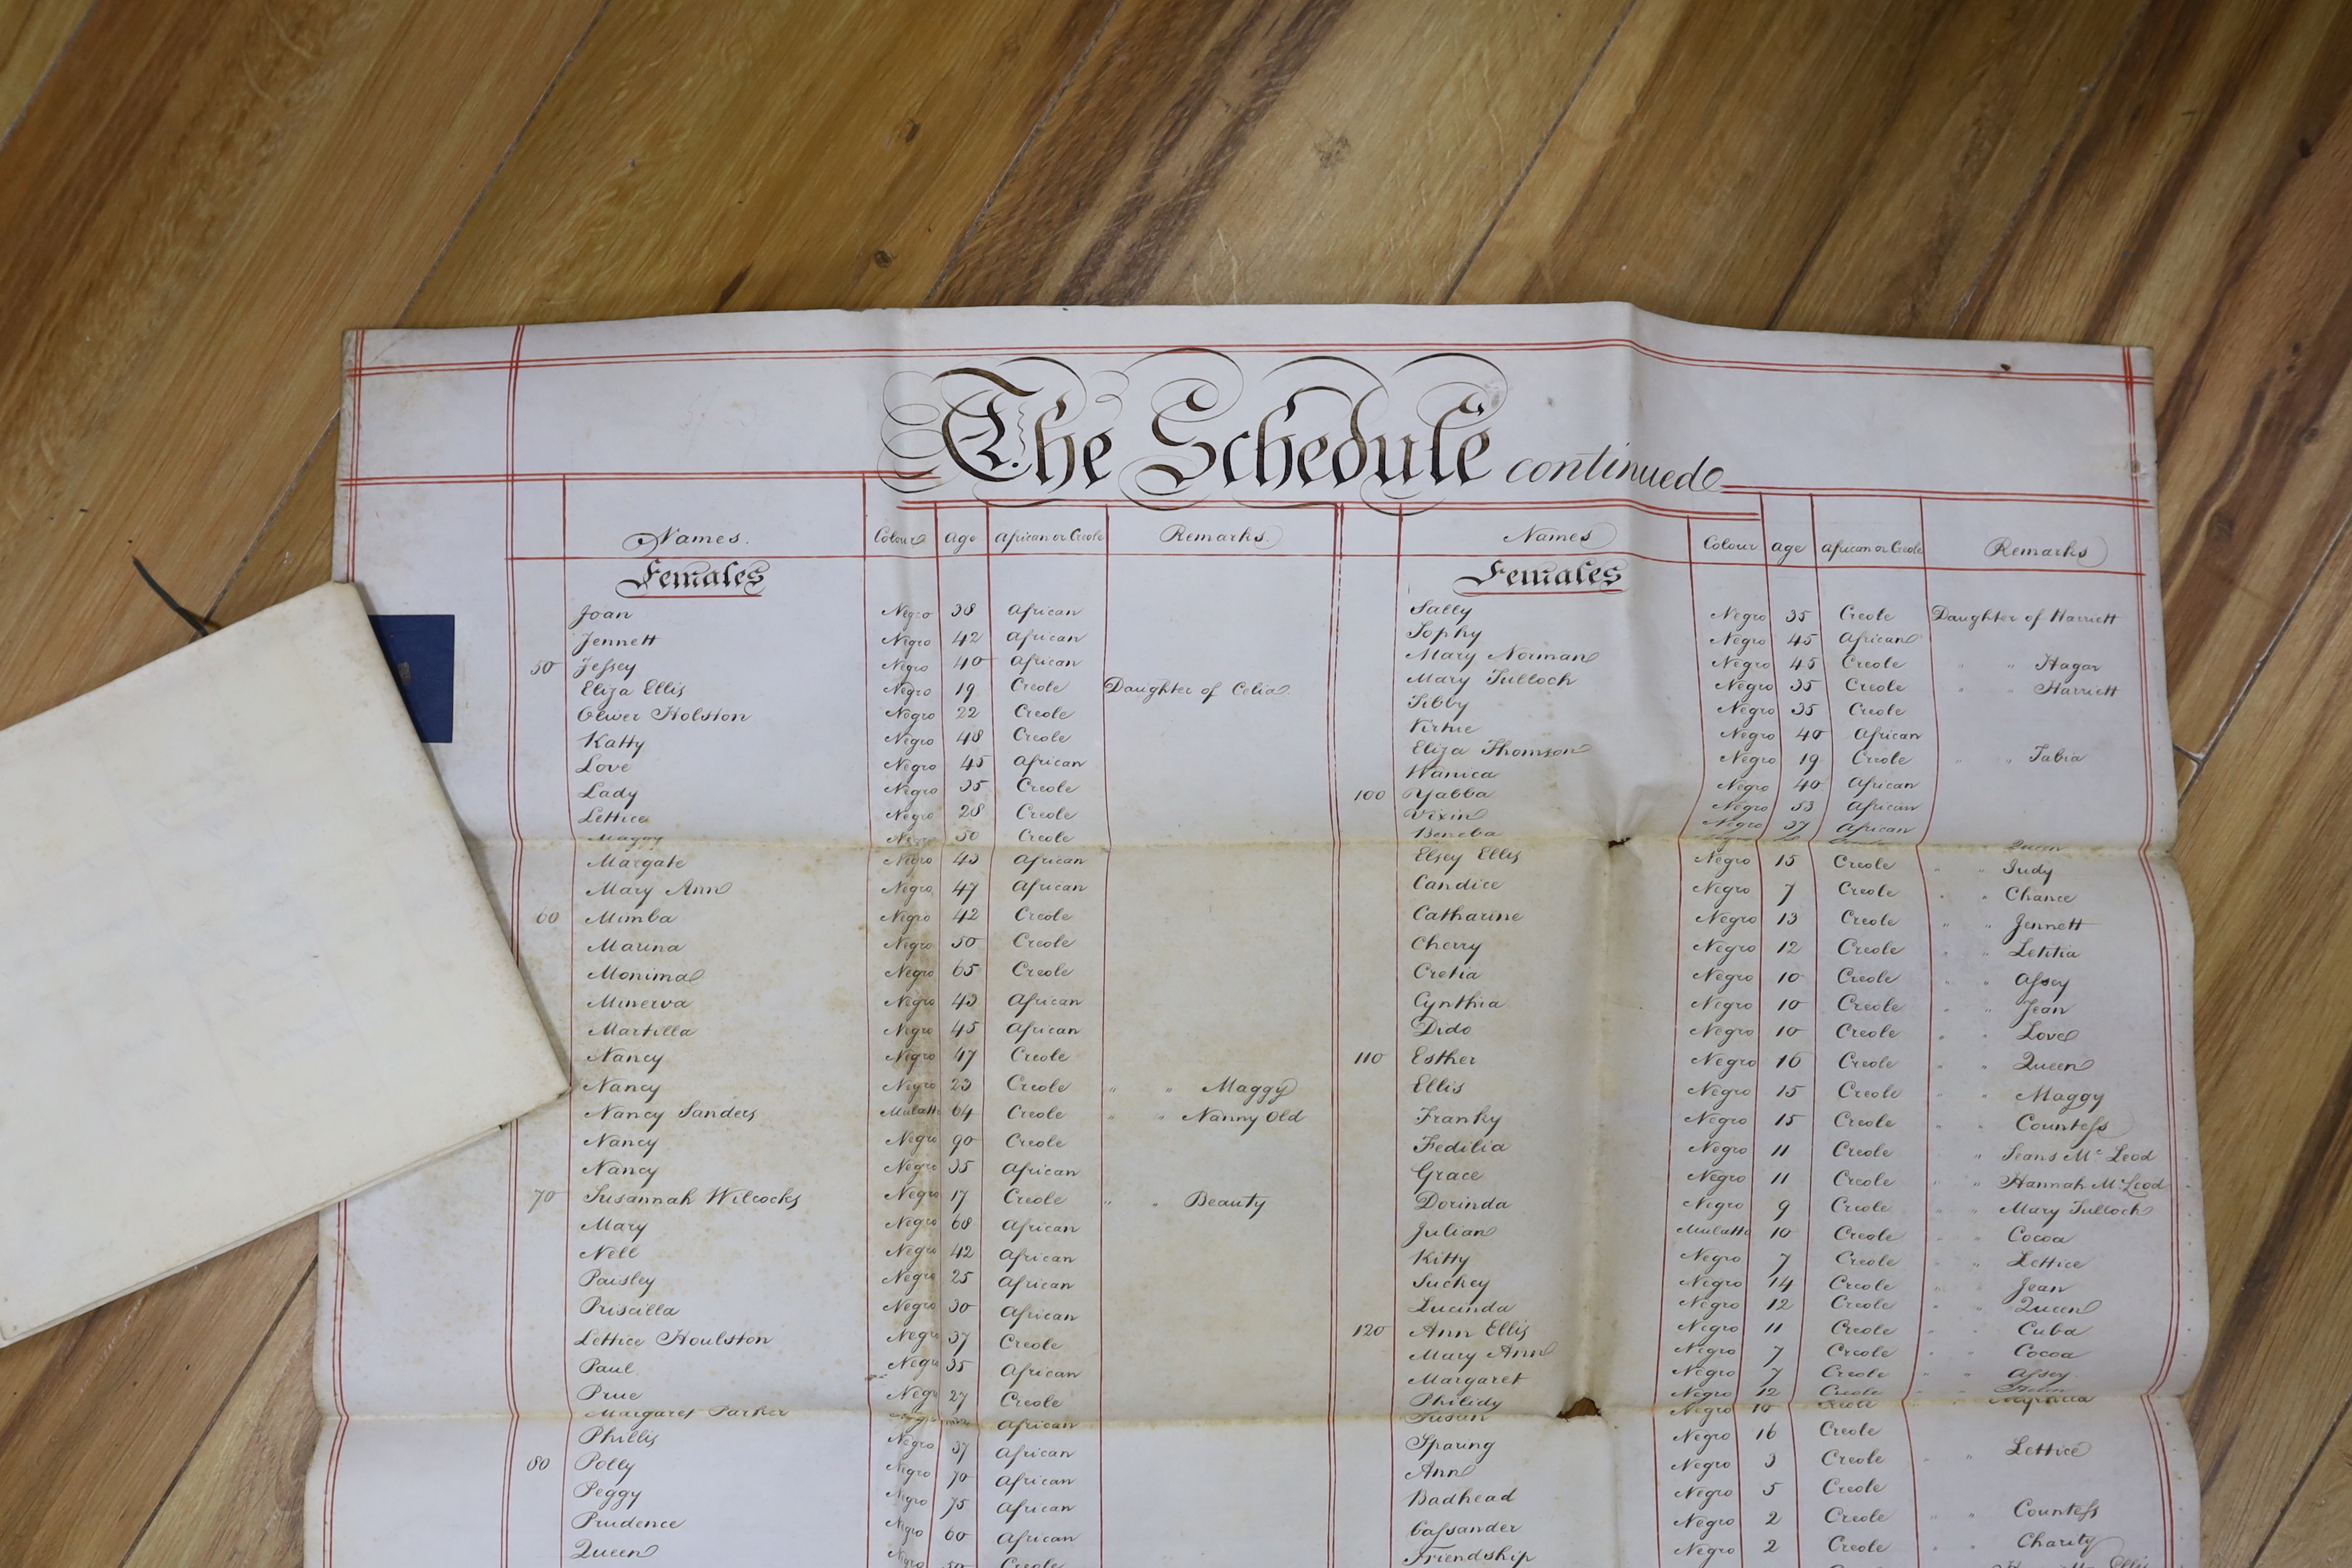 The Schedule continued
Names. Colour Age African or Creole Remarks
Females
Joan Negro 38 African
Jennett Negro 42 African
50 Jessey Negro 40 African
Eliza Ellis Negro 19 Creole Daughter of Celia
Oliver Holston Negro 22 Creole
Katty Negro 48 Creole
Love Negro 45 African
Lady Negro 35 Creole
Lettice Negro 28 Creole
Maggy Negro 50 Creole
Margate Negro 43 African
Mary Ann Negro 47 African
60 Mimba Negro 42 Creole
Marina Negro 50 Creole
Monimal Negro 65 Creole
Minerva Negro 43 African
Martilla Negro 45 African
Nancy Negro 47 Creole
Nancy Negro 23 Creole " " Maggy
Nancy Sanders Mulatto 64 Creole " " Nanny Old
Nancy Negro 90 Creole
Nancy Negro 35 African
70 Susannah Wilcocks Negro 17 Creole " " Beauty
Mary Negro 68 African
Nell Negro 42 African
Paisley Negro 25 African
Priscilla Negro 30 African
Lettice Houlston Negro 37 Creole
Paul Negro 35 African
Prue Negro 27 Creole
Margaret Parker African
Phillis Negro 37 African
80 Polly Negro 70 African
Peggy Negro 75 African
Prudence Negro 60 African
Queen Negro 50 Creole
Names Colour Age African or Creole Remarks
Females
Sally Negro 35 Creole Daughter of Harriett
Sophy Negro 45 African
Mary Norman Negro 45 Creole " " Hagar
Mary Tulloch Negro 35 Creole " " Harriett
Sibby Negro 35 Creole
Virtue Negro 40 African
Eliza Thomson Negro 19 Creole " " Tabia
Wanica Negro 40 African
100 Yabba Negro 53 African
Vixin Negro 37 African
Beneba Queen
Elsey Ellis Negro 15 Creole " " Judy
Candice Negro 7 Creole " " Chance
Catharine Negro 13 Creole " " Jennett
Cherry Negro 12 Creole " " Letitia
Cretia Negro 10 Creole " " Assey
Cynthia Negro 10 Creole " " Jean
Dido Negro 10 Creole " " Love
110 Esther Negro 16 Creole " " Queen
Ellis Negro 15 Creole " " Maggy
Franky Negro 15 Creole " " Countess
Fedilia Negro 11 Creole " Jeans Mc Leod
Grace Negro 11 Creole " " Hannah McLeod
Dorinda Negro 9 Creole " " Mary Tulloch
Julian Mulatto 10 Creole " " Cocoa
Kitty Negro 7 Creole " " Lettice
Suckey Negro 14 Creole " " Jean
Lucinda Negro 12 Creole " " Queen
120 Ann Ellis Negro 11 Creole " " Cuba
Mary Ann Negro 7 Creole " " Cocoa
Margaret Negro 7 Creole " " Assey
Philidy Negro 12 Creole
Susan Negro 10 Creole
Sparing Negro 16 Creole
Ann Negro 3 Creole " " Lettice
Badhead Negro 5 Creole
Cassander Negro 2 Creole " " Countess
Friendship Negro 2 Creole " " Charity